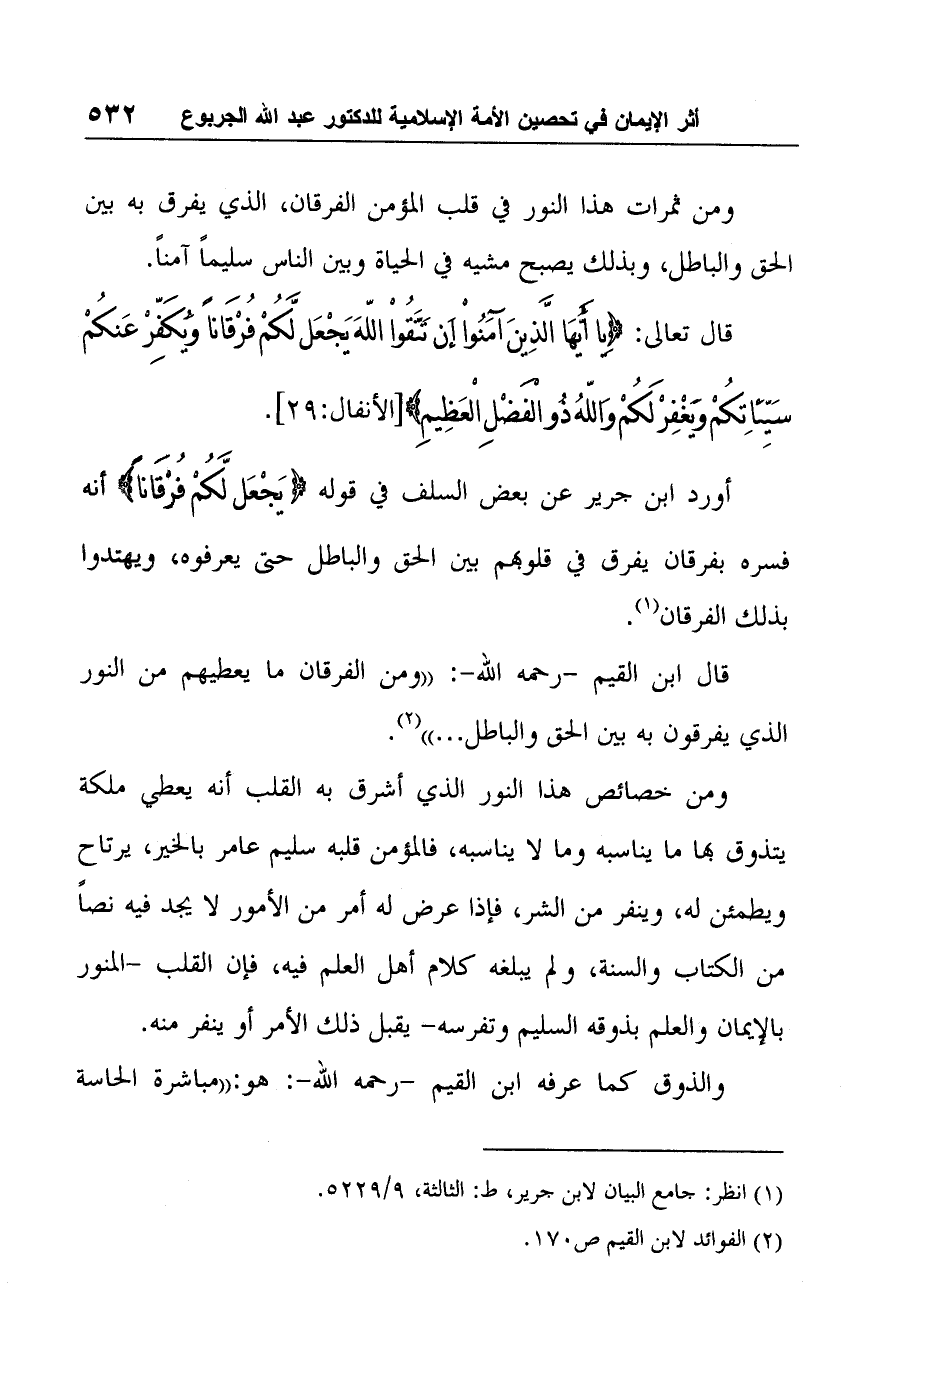 أثر الإيمان في تحصين الأمة الإسلامية للدكتور عبد الله الجربوع ٥٣٢
ومن ثمرات هذا النور في قلب المؤمن الفرقان، الذي يفرق به بين
الحق والباطل، وبذلك يصبح مشيه في الحياة وبين الناس سليماً آمناً.
قال تعالى: ﴿يَا أَيُّهَا الَّذِينَ آمَنُواْ إِن تَتَّقُواْ اللّهَ يَجْعَل لَّكُمْ فُرْقَاناً وَيُكَفِّرْ عَنكُمْ
سَيِّئَاتِكُمْ وَيَغْفِرْ لَكُمْ وَاللّهُ ذُو الْفَضْلِ الْعَظِيمِ﴾[الأنفال:٢٩].
أورد ابن جرير عن بعض السلف في قوله ﴿يَجْعَل لَّكُمْ فُرْقَاناً﴾ أنه
فسره بفرقان يفرق في قلوبهم بين الحق والباطل حتى يعرفوه، ويهتدوا
بذلك الفرقان(١).
قال ابن القيم –رحمه الله–: ((ومن الفرقان ما يعطيهم من النور
الذي يفرقون به بين الحق والباطل...))(٢).
ومن خصائص هذا النور الذي أشرق به القلب أنه يعطي ملكة
يتذوق بها ما يناسبه وما لا يناسبه، فالمؤمن قلبه سليم عامر بالخير، يرتاح
ويطمئن له، وينفر من الشر، فإذا عرض له أمر من الأمور لا يجد فيه نصاً
من الكتاب والسنة، ولم يبلغه كلام أهل العلم فيه، فإن القلب –المنور
بالإيمان والعلم بذوقه السليم وتفرسه– يقبل ذلك الأمر أو ينفر منه.
والذوق كما عرفه ابن القيم –رحمه الله–: هو:((مباشرة الحاسة
(١) انظر: جامع البيان لابن جرير، ط: الثالثة، ٥٢٢٩/٩.
(٢) الفوائد لابن القيم ص١٧٠.